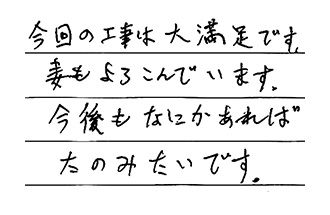 今回の工事は大満足です。
妻もよろこんでいます。
今後もなにかあれば
たのみたいです。